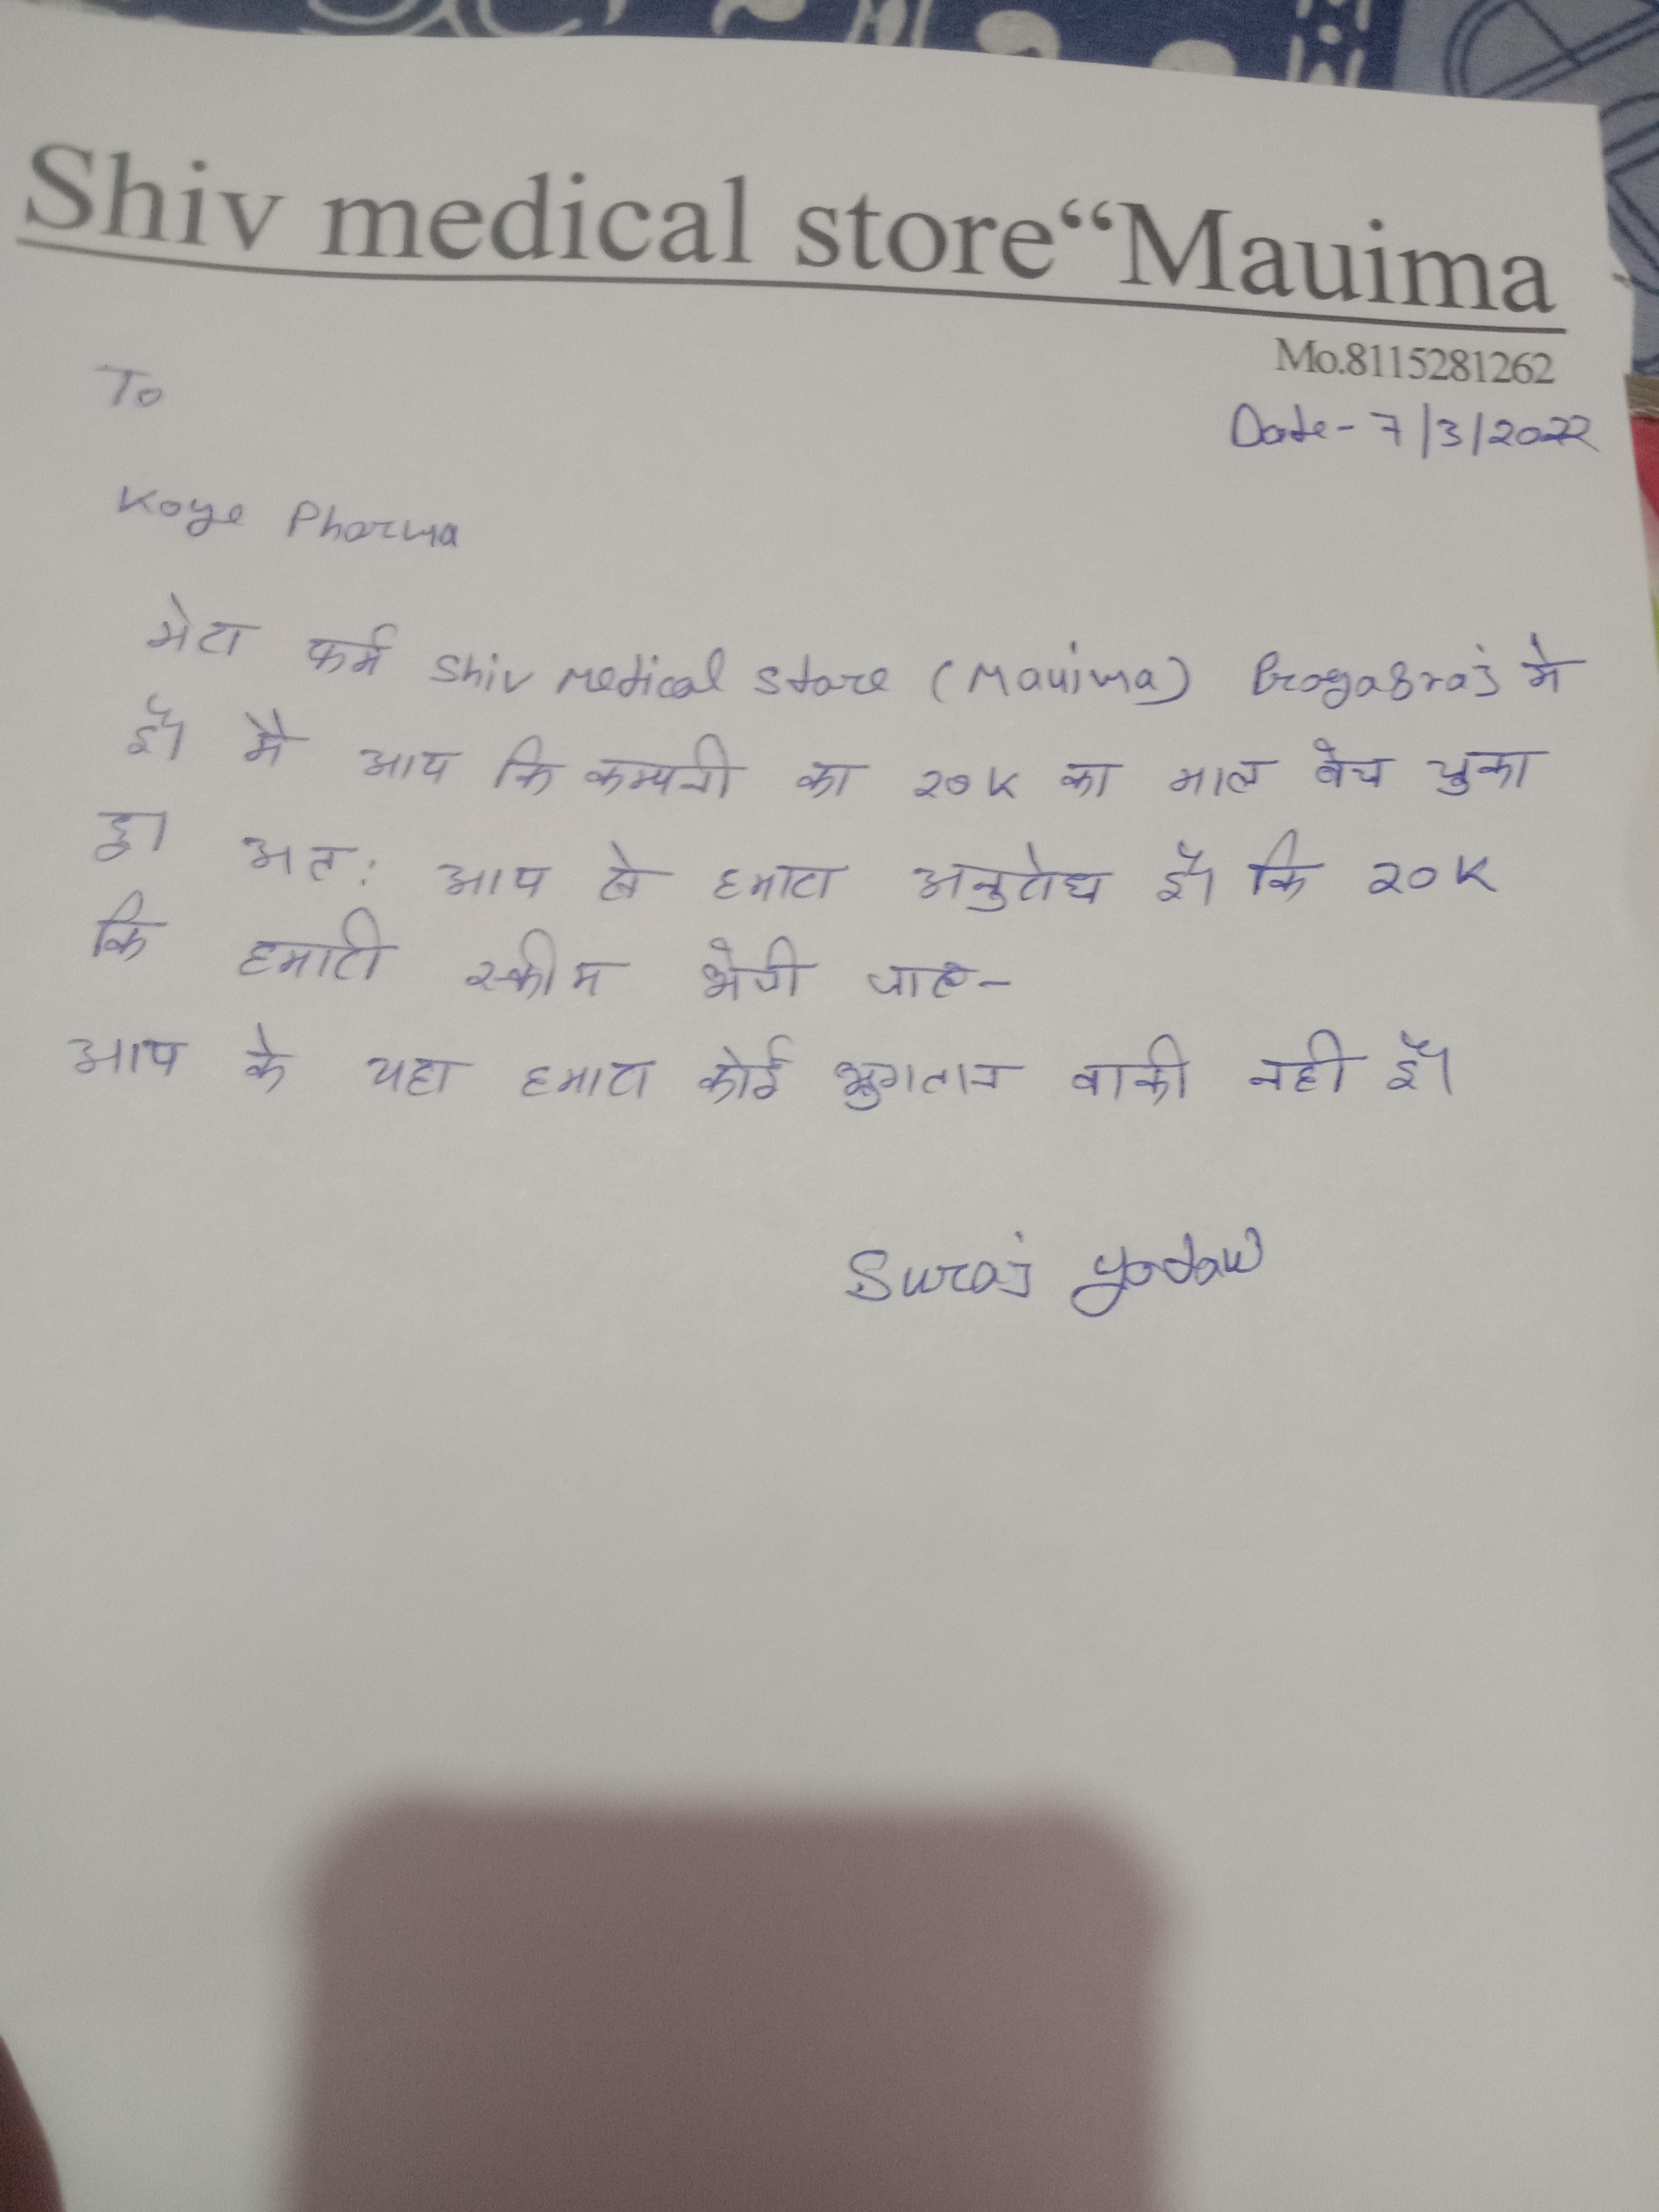 Shiv medical store“Mauima
Mo.8115281262
To
Date- 7/3/2022
Koye Pharma
मेरा फर्म Shiv Medical Store (Mauima) में
है। मै आप कि कम्पनी का 20K का माल बेच चुका
हु। अत: आप से हमारा अनुरोध है। कि 20K
कि हमारी स्कीम भेजी जाए-
आप के यहा हमारा कोई भुगतान बाकी नही है।
Suraj Yadaw